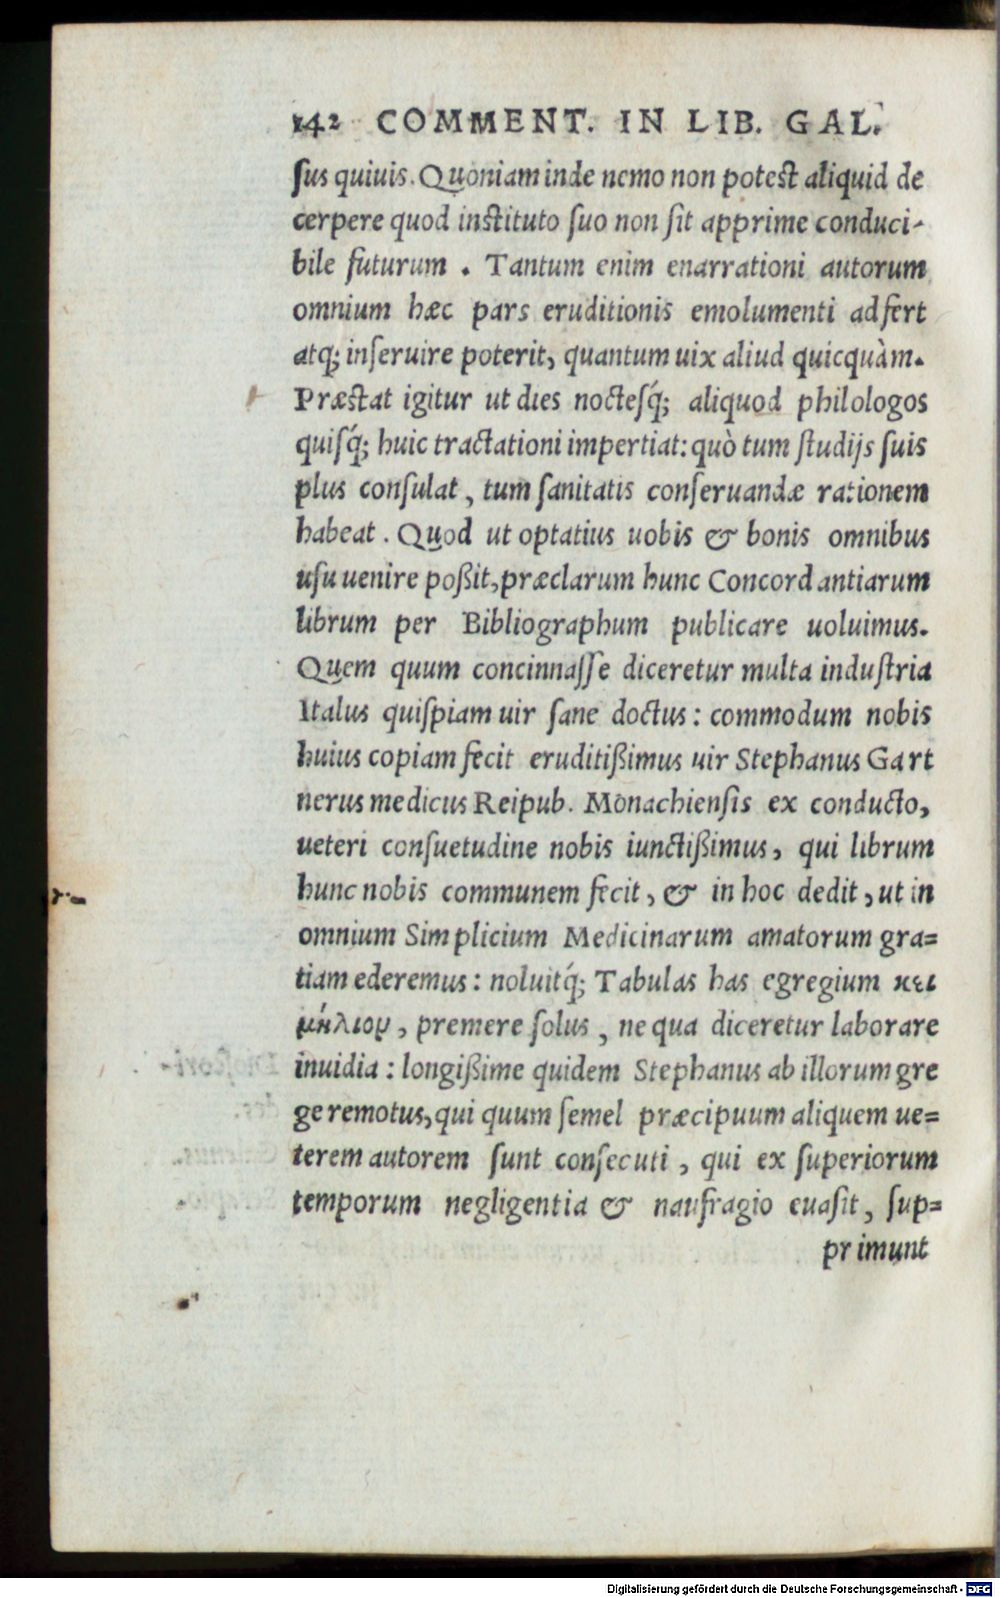 142 COMMENT. IN LIB. GAL.
sus quiuis. Quoniam inde nemo non potest aliquid de
cerpere quod instituto suo non sit apprime conduci-
bile futurum. Tantum enim enarrationi autorum
omnium hæc pars eruditionis emolumenti adfert
atq; inseruire poterit, quantum uix aliud quicquàm.
Præstat igitur ut dies noctesq́; aliquod philologos
quisq́; huic tractationi impertiat: quò tum studijs suis
plus consulat, tum sanitatis conseruandæ rationem
habeat. Quod ut optatius uobis & bonis omnibus
usu uenire poßit, præclarum hunc Concordantiarum
librum per Bibliographum publicare uoluimus.
Quem quum concinnasse diceretur multa industria
Italus quispiam uir sane doctus: commodum nobis
huius copiam fecit eruditißimus uir Stephanus Gart
nerus medicus Reipub. Monachiensis ex conducto,
ueteri consuetudine nobis iunctißimus, qui librum
hunc nobis communem fecit, & in hoc dedit, ut in
omnium Simplicium Medicinarum amatorum gra=
tiam ederemus: noluitq́; Tabulas has egregium κει
μήλιον, premere solus, ne qua diceretur laborare
inuidia: longißime quidem Stephanus ab illorum gre
ge remotus, qui quum semel præcipuum aliquem ue=
terem autorem sunt consecuti, qui ex superiorum
temporum negligentia & naufragio euasit, sup=
primunt
Digitalisierung gefördert durch die Deutsche Forschungsgemeinschaft - DFG